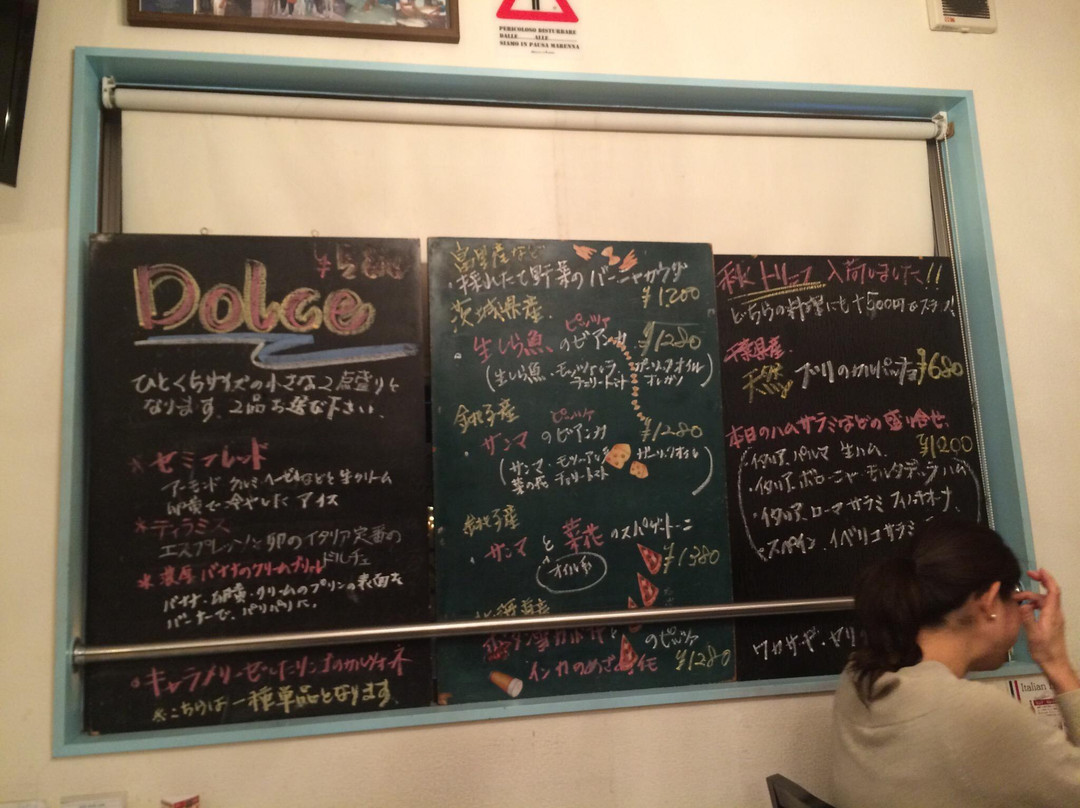 PERICOLOSO DISTURBARE
DALLE ALLE
SIAMO IN PAUSA MARENNA
Dolce
ひとくちサイズの小さな2点盛りと
なります。2品お選び下さい。
※セミフレッド
アーモンド クルミ ヘーゼルなどと生クリーム
卵黄で冷やしたアイス
※ティラミス
エスプレッソと卵のイタリア定番の
ドルチェ
※濃厚バナナのクリームブリュレ
バナナ、卵黄、クリームのプリンの表面を
バーナーで、パリパリに。
キャラメリーゼしたリンゴのカルツォーネ
※こちらは一種単品となります。
採れたて野菜のバーニャカウダ
¥1200
茨城県産
・生しら魚のビアンカ ¥1280
ピッツァ
(生しら魚・モッツァレラ ガーリックオイル
チェリートマト オレガノ)
銚子産
・サンマのビアンカ ¥1280
ピッツァ
(サンマ・モッツァレラ ガーリックオイル
菜の花 チェリートマト)
銚子産
・サンマと菜花のスパゲットーニ
オイル系
¥1380
のピッツァ
インカのめざめ ¥1280
秋トリュフ入荷しました!!
どちらの料理にも+500円でスライス!
千葉県産
天然 ブリのカルパッチョ ¥680
本日のハムサラミなどの盛り合せ
¥1200
・イタリア、パルマ 生ハム
・イタリア、ボローニャ・モルタデッラハム
・イタリア、ローマ サラミ フィノッキオーナ
・スペイン、イベリコサラミ
Italian